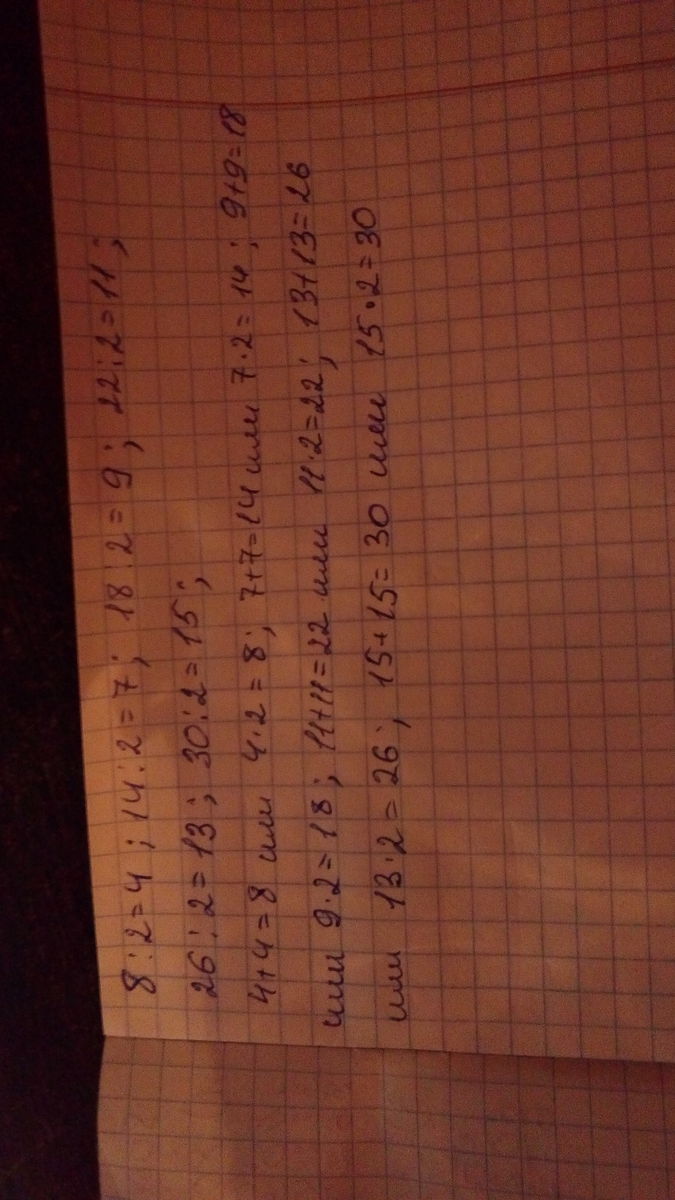 8:2=4; 14:2=7; 18:2=9; 22:2=11;
26:2=13; 30:2=15;
4+4=8 или 4·2=8; 7+7=14 или 7·2=14; 9+9=18
или 9·2=18; 11+11=22 или 11·2=22; 13+13=26
или 13·2=26; 15+15=30 или 15·2=30